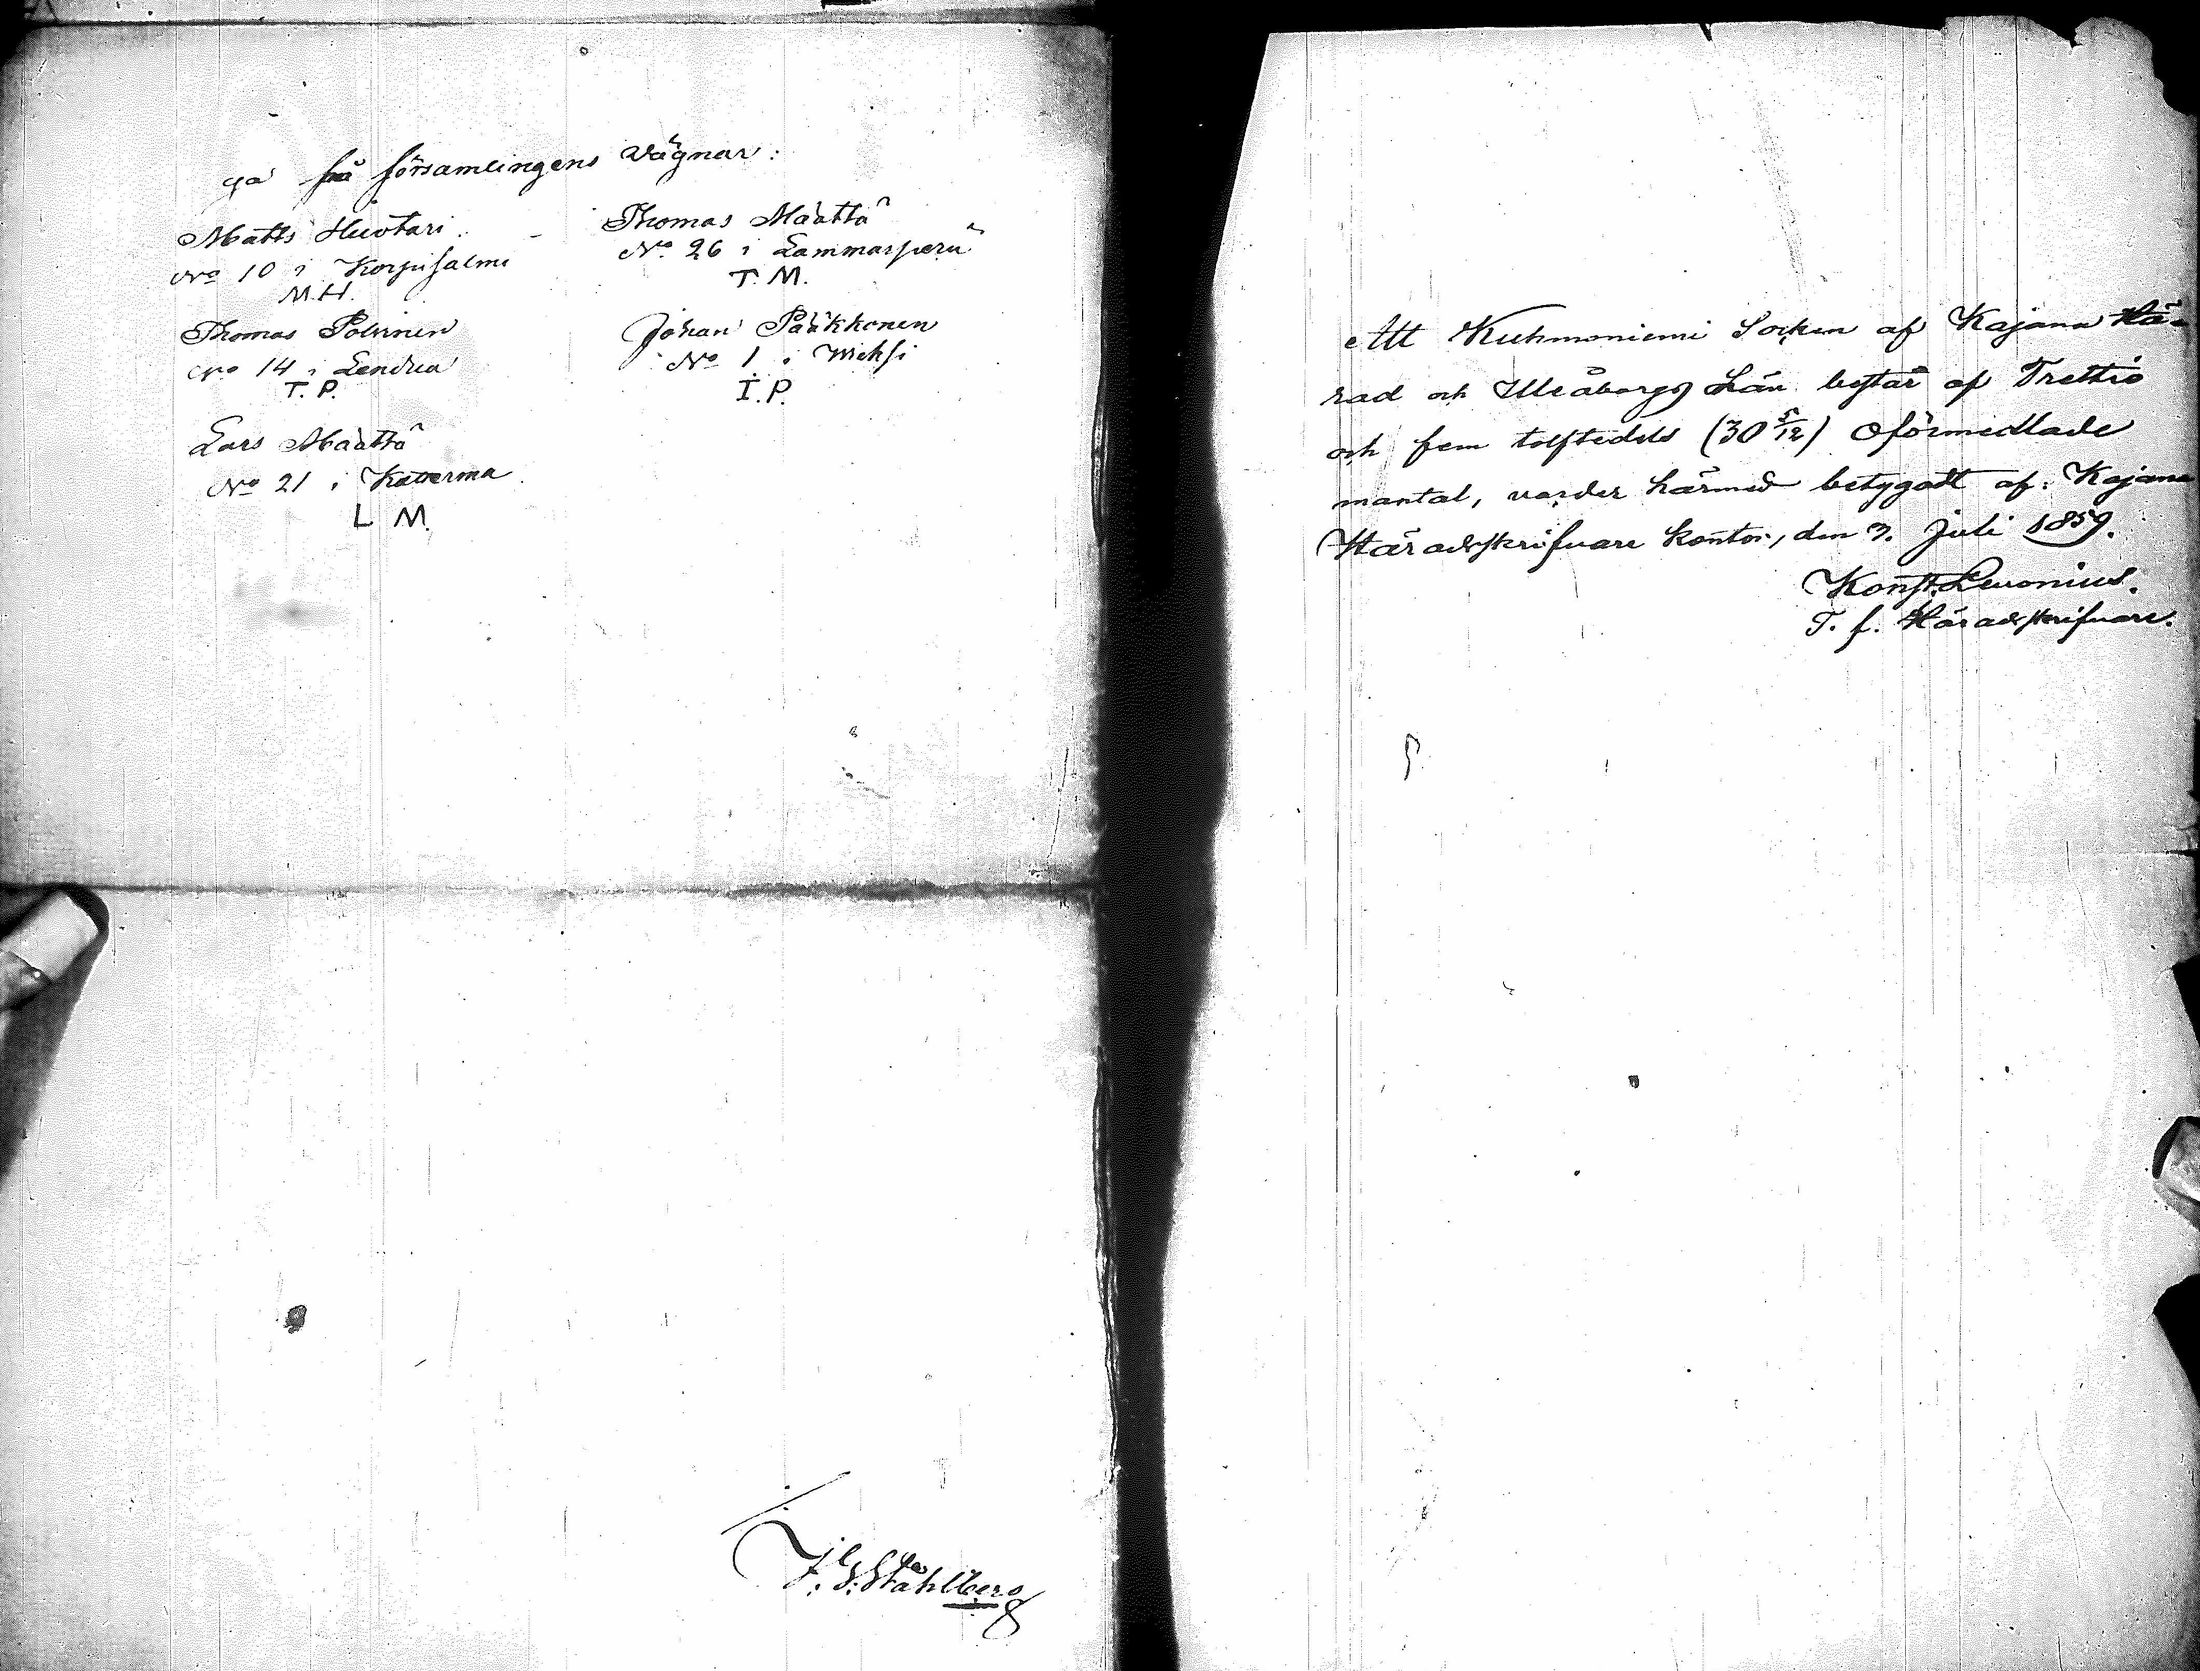 på församlingens vägnar:
Matts Huotari.
No 10 i Korpisalmi
M.H.
Thomas Polvinen
No 14 i Lendua
T.P.
Lars Määttä
No 21 i Katerma
L M.
Thomas Määttä
No 26 i Lammasperä
T. M.
Johan Pääkkonen
No 1 i Wieksi
I.P.
J. G. Ståhlberg
Att Kuhmoniemi Socken af Kajana Hä-
rad och Uleåborgs Län består af Trettio
och fem tolftedels (30 5/12) Oförmedlade
mantal, varder härmed betygadt af: Kajana
Häradsskrifvare kontor, den 3. Juli 1859.
Konst. Levonius.
T. f. Häradsskrifvare.